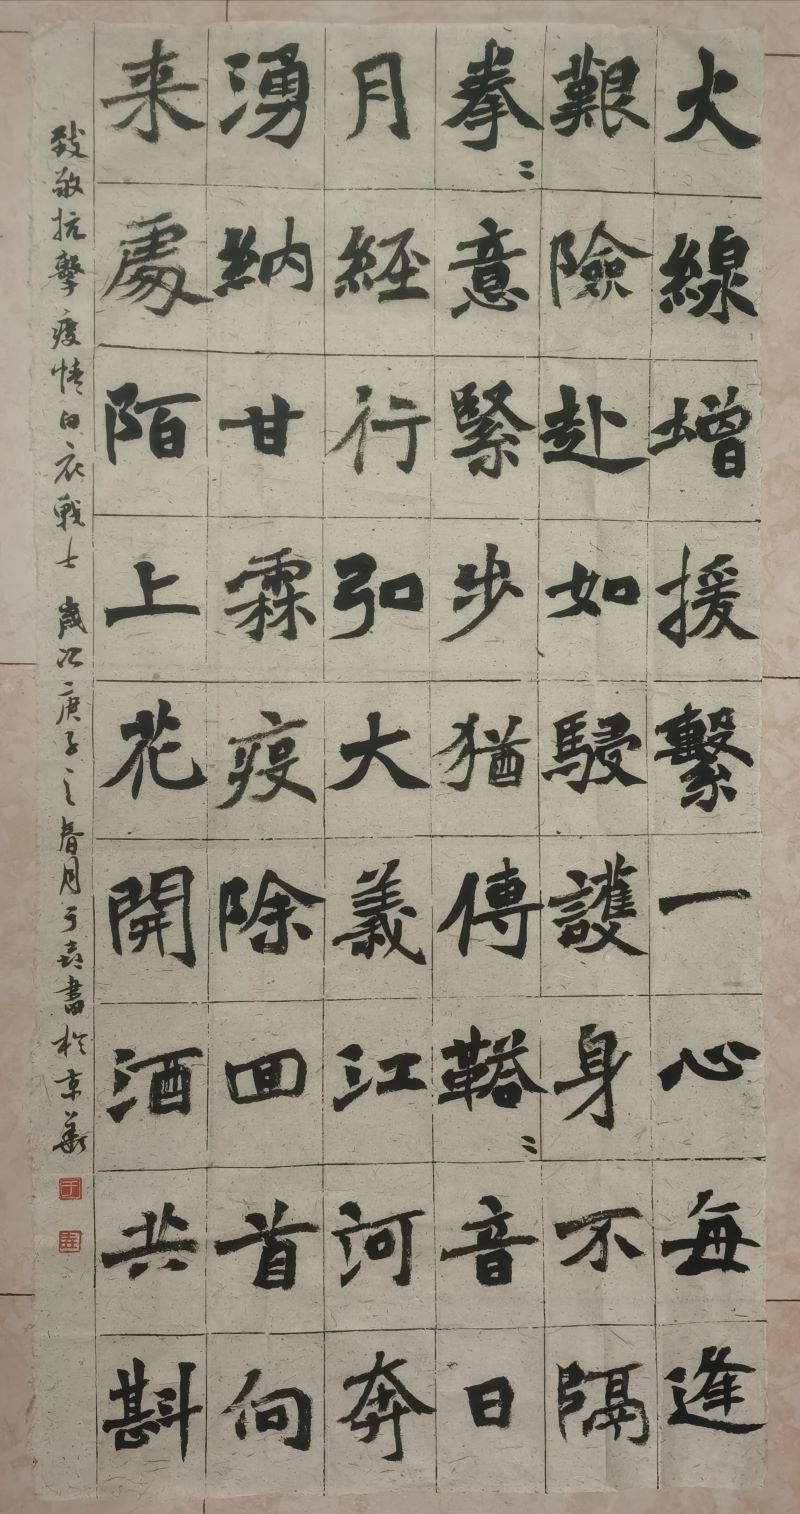 火線增援繫一心每逢
艱險赴如駸護身不隔
拳〻意緊步猶傳鞳〻音日
月經行弘大義江河奔
湧納甘霖疫除囬首向
来處陌上花開酒共斟
致敬抗擊疫情白衣戰士 歲次庚子之春月于書於京華
于